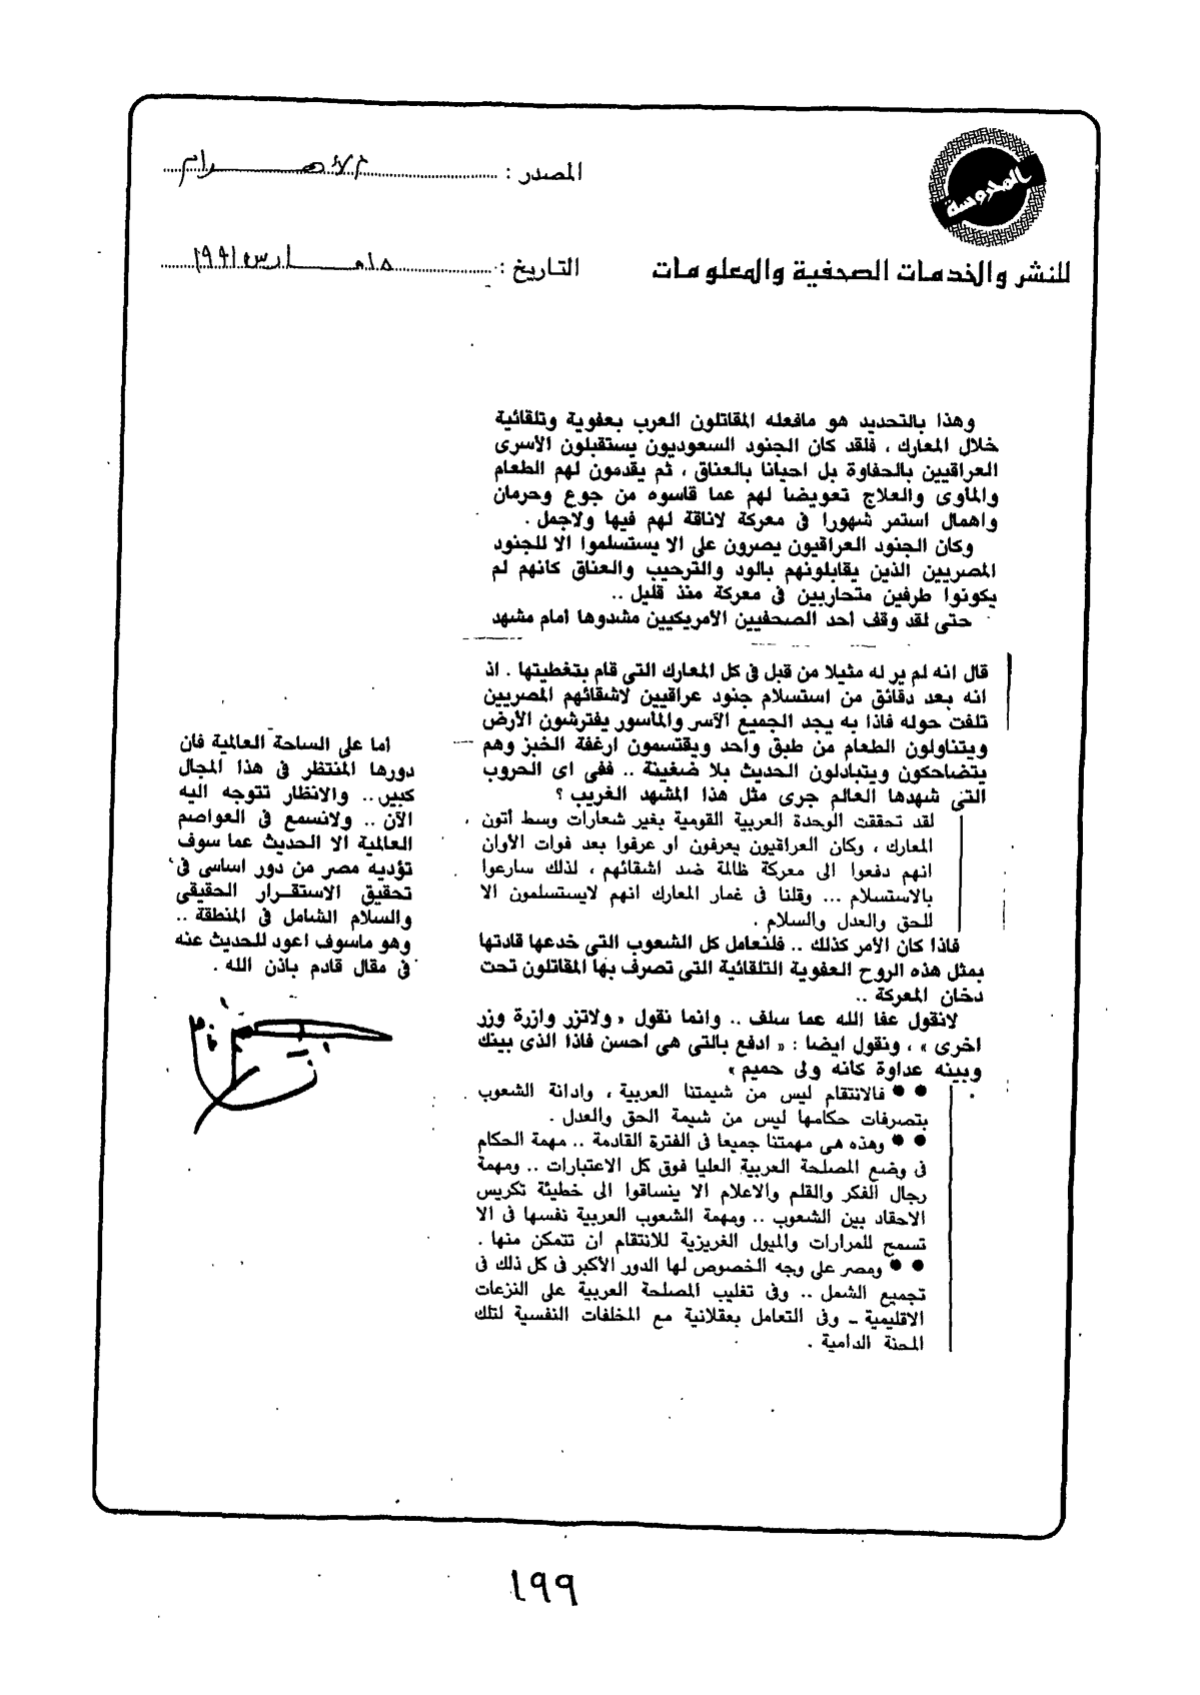 المحروسة
للنشر والخدمات الصحفية والمعلومات
المصدر : الأهرام
التاريخ : ٨ مارس ١٩٩١
وهذا بالتحديد هو مافعله المقاتلون العرب بعفوية وتلقائية
خلال المعارك ، فلقد كان الجنود السعوديون يستقبلون الأسرى
العراقيين بالحفاوة بل احيانا بالعناق ، ثم يقدمون لهم الطعام
والمأوى والعلاج تعويضا لهم عما قاسوه من جوع وحرمان
واهمال استمر شهورا فى معركة لاناقة لهم فيها ولاجمل .
وكان الجنود العراقيون يصرون على الا يستسلموا الا للجنود
المصريين الذين يقابلونهم بالود والترحيب والعناق كانهم لم
يكونوا طرفين متحاربين فى معركة منذ قليل ..
حتى لقد وقف أحد الصحفيين الأمريكيين مشدوها امام مشهد
قال انه لم ير له مثيلا من قبل فى كل المعارك التى قام بتغطيتها . اذ
انه بعد دقائق من استسلام جنود عراقيين لاشقائهم المصريين
تلفت حوله فاذا به يجد الجميع الآسر والمأسور يفترشون الأرض
ويتناولون الطعام من طبق واحد ويقتسمون ارغفة الخبز وهم
يتضاحكون ويتبادلون الحديث بلا ضغينة .. ففى اى الحروب
التى شهدها العالم جرى مثل هذا المشهد الغريب ؟
لقد تحققت الوحدة العربية القومية بغير شعارات وسط أتون
المعارك ، وكان العراقيون يعرفون او عرفوا بعد فوات الأوان
انهم دفعوا الى معركة ظالمة ضد اشقائهم ، لذلك سارعوا
بالاستسلام ... وقلنا فى غمار المعارك انهم لايستسلمون الا
للحق والعدل والسلام .
فاذا كان الأمر كذلك .. فلنعامل كل الشعوب التى خدعها قادتها
بمثل هذه الروح العفوية التلقائية التى تصرف بها المقاتلون تحت
دخان المعركة ..
لانقول عفا الله عما سلف .. وانما نقول « ولاتزر وازرة وزر
اخرى » ، ونقول ايضا : « ادفع بالتى هى احسن فاذا الذى بينك
وبينه عداوة كانه ولى حميم »
●● فالانتقام ليس من شيمتنا العربية ، وادانة الشعوب
بتصرفات حكامها ليس من شيمة الحق والعدل .
●● وهذه هى مهمتنا جميعا فى الفترة القادمة .. مهمة الحكام
فى وضع المصلحة العربية العليا فوق كل الاعتبارات .. ومهمة
رجال الفكر والقلم والاعلام الا ينساقوا الى خطيئة تكريس
الاحقاد بين الشعوب .. ومهمة الشعوب العربية نفسها فى الا
تسمح للمرارات والميول الغريزية للانتقام ان تتمكن منها .
●● ومصر على وجه الخصوص لها الدور الأكبر فى كل ذلك فى
تجميع الشمل .. وفى تغليب المصلحة العربية على النزعات
الاقليمية ـ وفى التعامل بعقلانية مع المخلفات النفسية لتلك
المحنة الدامية .
أما على الساحة العالمية فان
دورها المنتظر فى هذا المجال
كبير .. والانظار تتوجه اليه
الآن .. ولانسمع فى العواصم
العالمية الا الحديث عما سوف
تؤديه مصر من دور اساسى فى
تحقيق الاستقرار الحقيقى
والسلام الشامل فى المنطقة ..
وهو ماسوف اعود للحديث عنه
فى مقال قادم باذن الله .
١٩٩